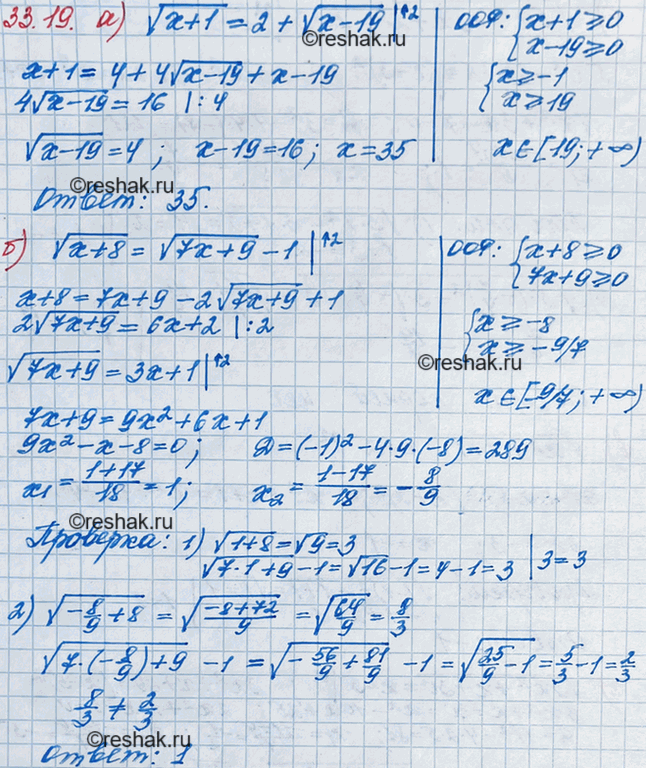 33.19. а) √(x+1) = 2 + √(x-19) |↑2
ООФ: { x+1 ≥ 0
x-19 ≥ 0
x+1 = 4 + 4√(x-19) + x - 19
{ x ≥ -1
x ≥ 19
4√(x-19) = 16 |:4
√(x-19) = 4 ; x-19 = 16 ; x = 35
x ∈ [19; +∞)
©reshak.ru
Ответ: 35.
б) √(x+8) = √(7x+9) - 1 |↑2
ООФ: { x+8 ≥ 0
7x+9 ≥ 0
x+8 = 7x+9 - 2√(7x+9) + 1
2√(7x+9) = 6x+2 |:2
{ x ≥ -8
x ≥ -9/7
©reshak.ru
√(7x+9) = 3x+1 |↑2
x ∈ [-9/7; +∞)
7x+9 = 9x² + 6x + 1
9x² - x - 8 = 0 ; Д = (-1)² - 4·9·(-8) = 289
x₁ = (1+17)/18 = 1 ; x₂ = (1-17)/18 = -8/9
©reshak.ru
Проверка: 1) √(1+8) = √9 = 3
√(7·1+9) - 1 = √16 - 1 = 4 - 1 = 3 | 3 = 3
2) √(-8/9 + 8) = √((-8+72)/9) = √(64/9) = 8/3
√(7·(-8/9)+9) - 1 = √(-56/9 + 81/9) - 1 = √(25/9 - 1) = 5/3 - 1 = 2/3
8/3 ≠ 2/3
©reshak.ru
Ответ: 1